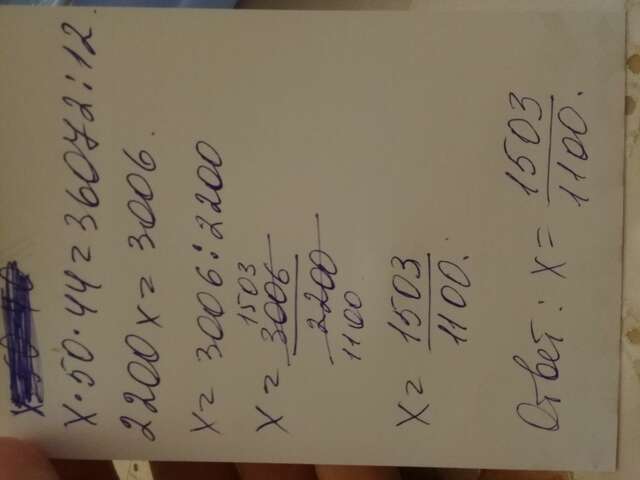 x·50·44=36072:12.
2200x=3006.
x=3006:2200
x= 1503 3006/2200 1100
x= 1503/1100.
Ответ: x= 1503/1100.